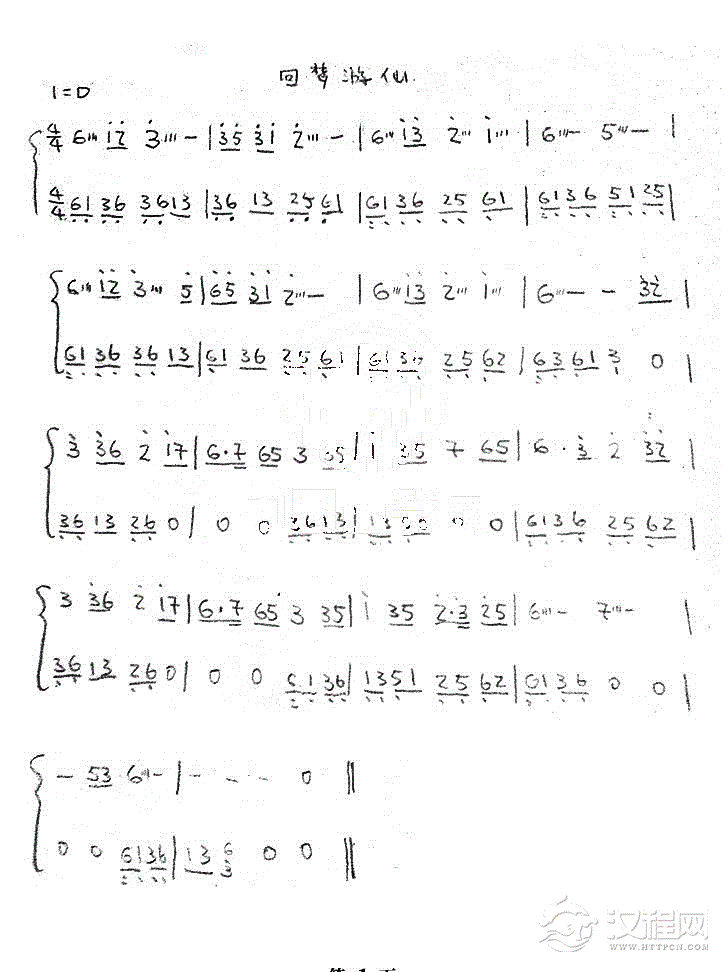 回梦游仙
1=D
4/4 6''' i2 3''' - | 35 31 2''' - | 6''' 13 2''' 1''' | 6''' - 5''' - |
4/4 61 36 3613 | 36 13 25 61 | 61 36 25 61 | 6136 5125 |
6''' 12 3''' 5 | 65 31 2''' - | 6''' 13 2''' 1''' | 6''' - - 32 |
61 36 36 13 | 61 36 25 61 | 6136 25 62 | 63 61 3 0 |
3 36 2 17 | 6·7 65 3 35 | 1 35 7 65 | 6· 3 2 32 |
36 13 26 0 | 0 0 3613 | 13 0 0 | 6136 25 62 |
3 36 2 17 | 6·7 65 3 35 | 1 35 2·3 25 | 6''' - 7''' - |
36 13 26 0 | 0 0 61 36 | 1351 25 62 | 6136 0 0 |
- 53 6''' - | - - - 0 ||
0 0 6136 | 13 6 3 0 0 ||
汉程网
HTTPCN.COM